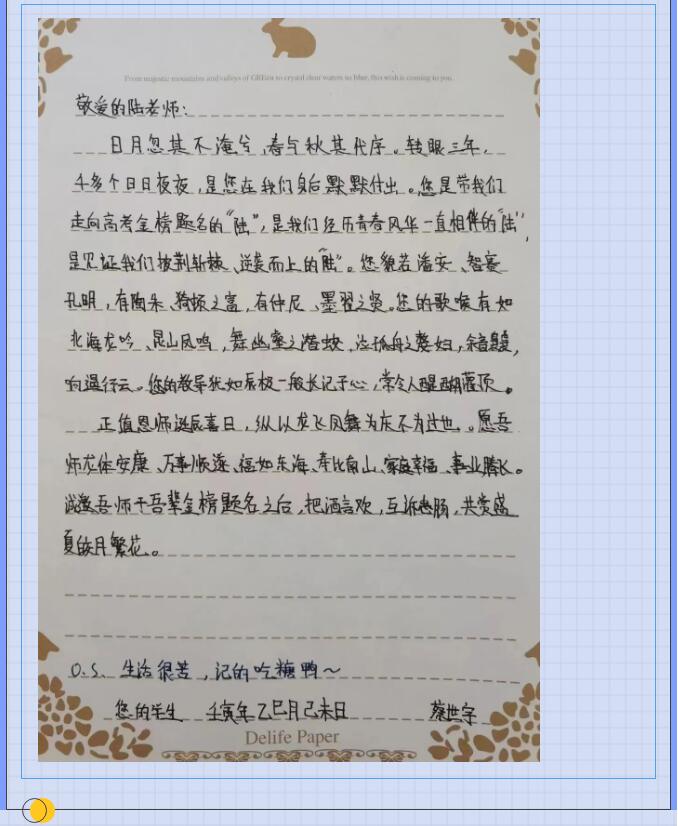 From majestic mountains and valleys of GREen to crystal clear waters so blue, this wish is coming to you.
敬爱的陆老师：
日月忽其不淹兮，春与秋其代序。转眼三年，
千多个日日夜夜，是您在我们身后默默付出。您是带我们
走向高考金榜题名的“陆”，是我们经历青春风华一直相伴的“陆”，
是见证我们披荆斩棘、逆袭而上的“陆”。您貌若潘安、智赛
孔明，有陶朱、猗顿之富，有仲尼、墨翟之贤。您的歌喉有如
北海龙吟、昆山凤鸣，舞幽壑之潜蛟，泣孤舟之嫠妇，余音袅袅，
响遏行云。您的教导犹如辰极一般长记于心，常令人醍醐灌顶。
正值恩师诞辰喜日，纵以龙飞凤舞为庆不为过也。愿吾
师龙体安康、万事顺遂、福如东海、寿比南山、家庭幸福、事业腾飞。
诚邀吾师于吾辈金榜题名之后，把酒言欢，互诉愁肠，共赏盛
夏皎月繁花。
O.S. 生活很苦，记的吃糖鸭～
您的学生 壬寅年乙巳月己未日 蔡世宇
Delife Paper